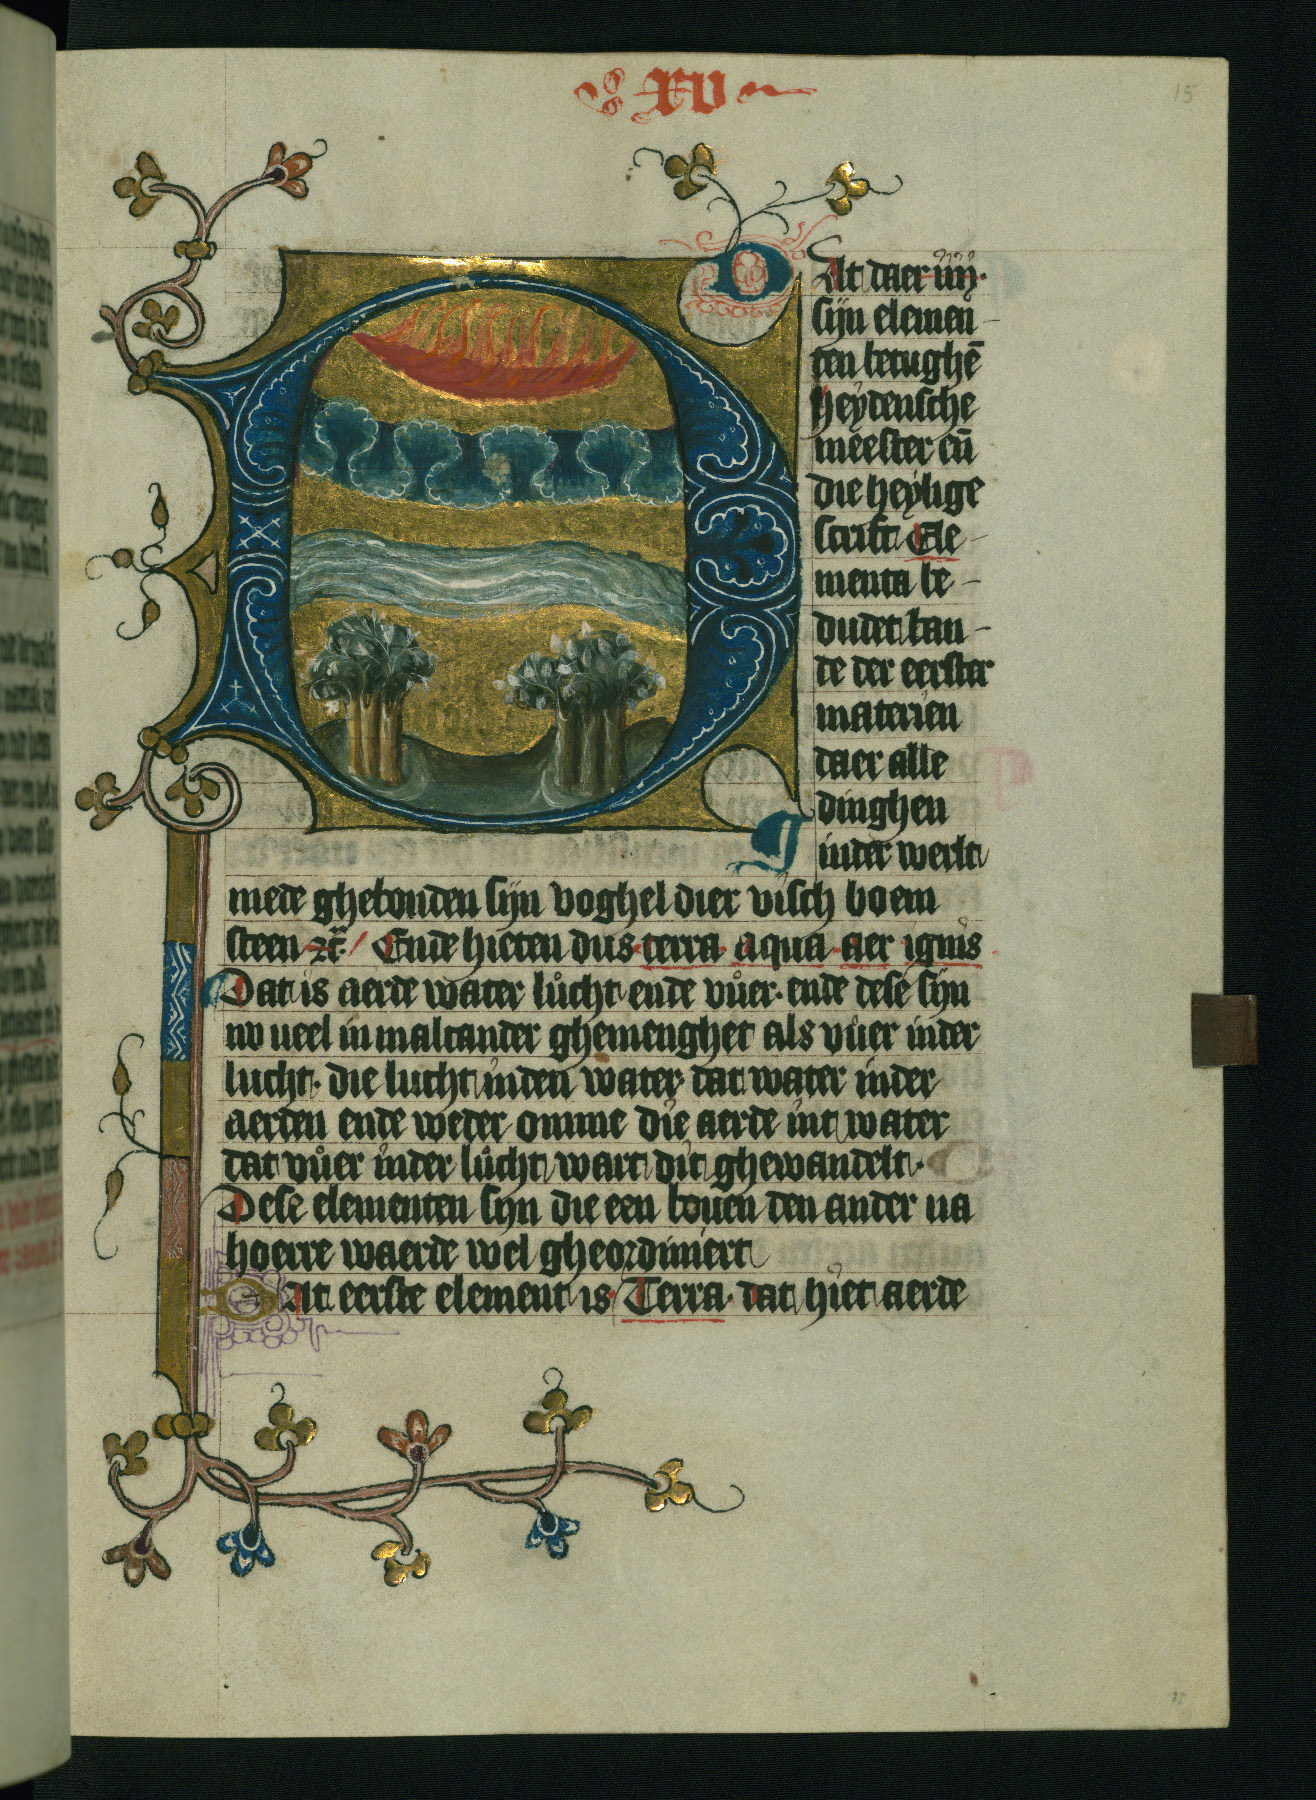 xv
15
Dat daer iiij.
sijn elemen
ten betughē
heydensche
meester eñ
die heylige
scrift Ele
menta be
dudet ban
de der eerster
materien
daer alle
dinghen
inder werlt
mede ghebonden sijn voghel dier visch boem
steen Ende hieten dus terra aqua aer ignis
Dat is aerde water lůcht ende vůer. ende dese sijn
no ueel in malcander ghemenghet als vuer inder
lucht. die lucht inden water. dat water inder
aerden ende weder omme die aerde int water
dat vůer inder lůcht wart dit ghewandelt.
Dese elementen sijn die een bouen den ander na
hoerre waerde wel gheordiniert
Dat eerste element is Terra. dat hiet aerde